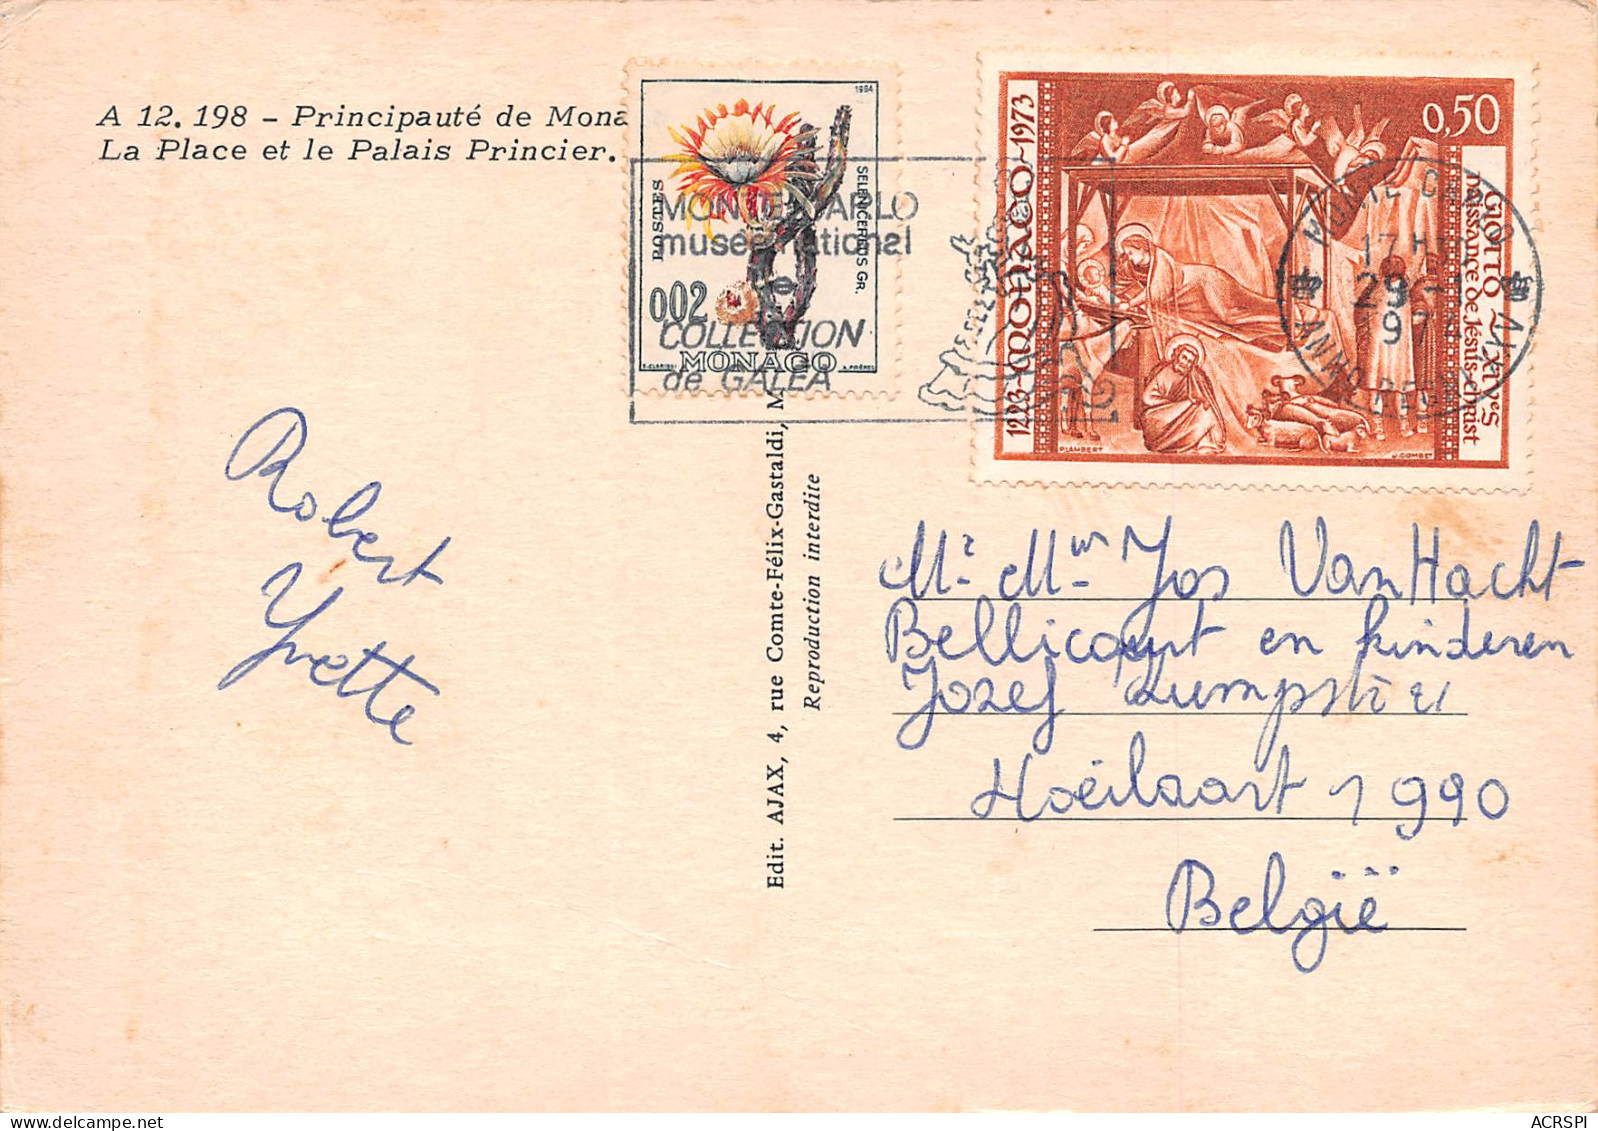 A 12.198 - Principauté de Mona
La Place et le Palais Princier.
1964
POSTES
SELENICEREUS GR.
0,02
MONACO
MONTE-CARLO
musée national
COLLECTION
de GALEA
1223-MONACO-1973
0,50
GIOTTO
naissance de Jésus-christ
P.LAMBERT
J.GOMBET
MONTE CARLO
17H
29-
197
Edit. AJAX, 4, rue Comte-Félix-Gastaldi, M
Reproduction interdite
Robert
Yvette
Mr Mw Jos VanHacht
en kinderen
Jozef
Hoeilaart 1990
België
ACRSPI